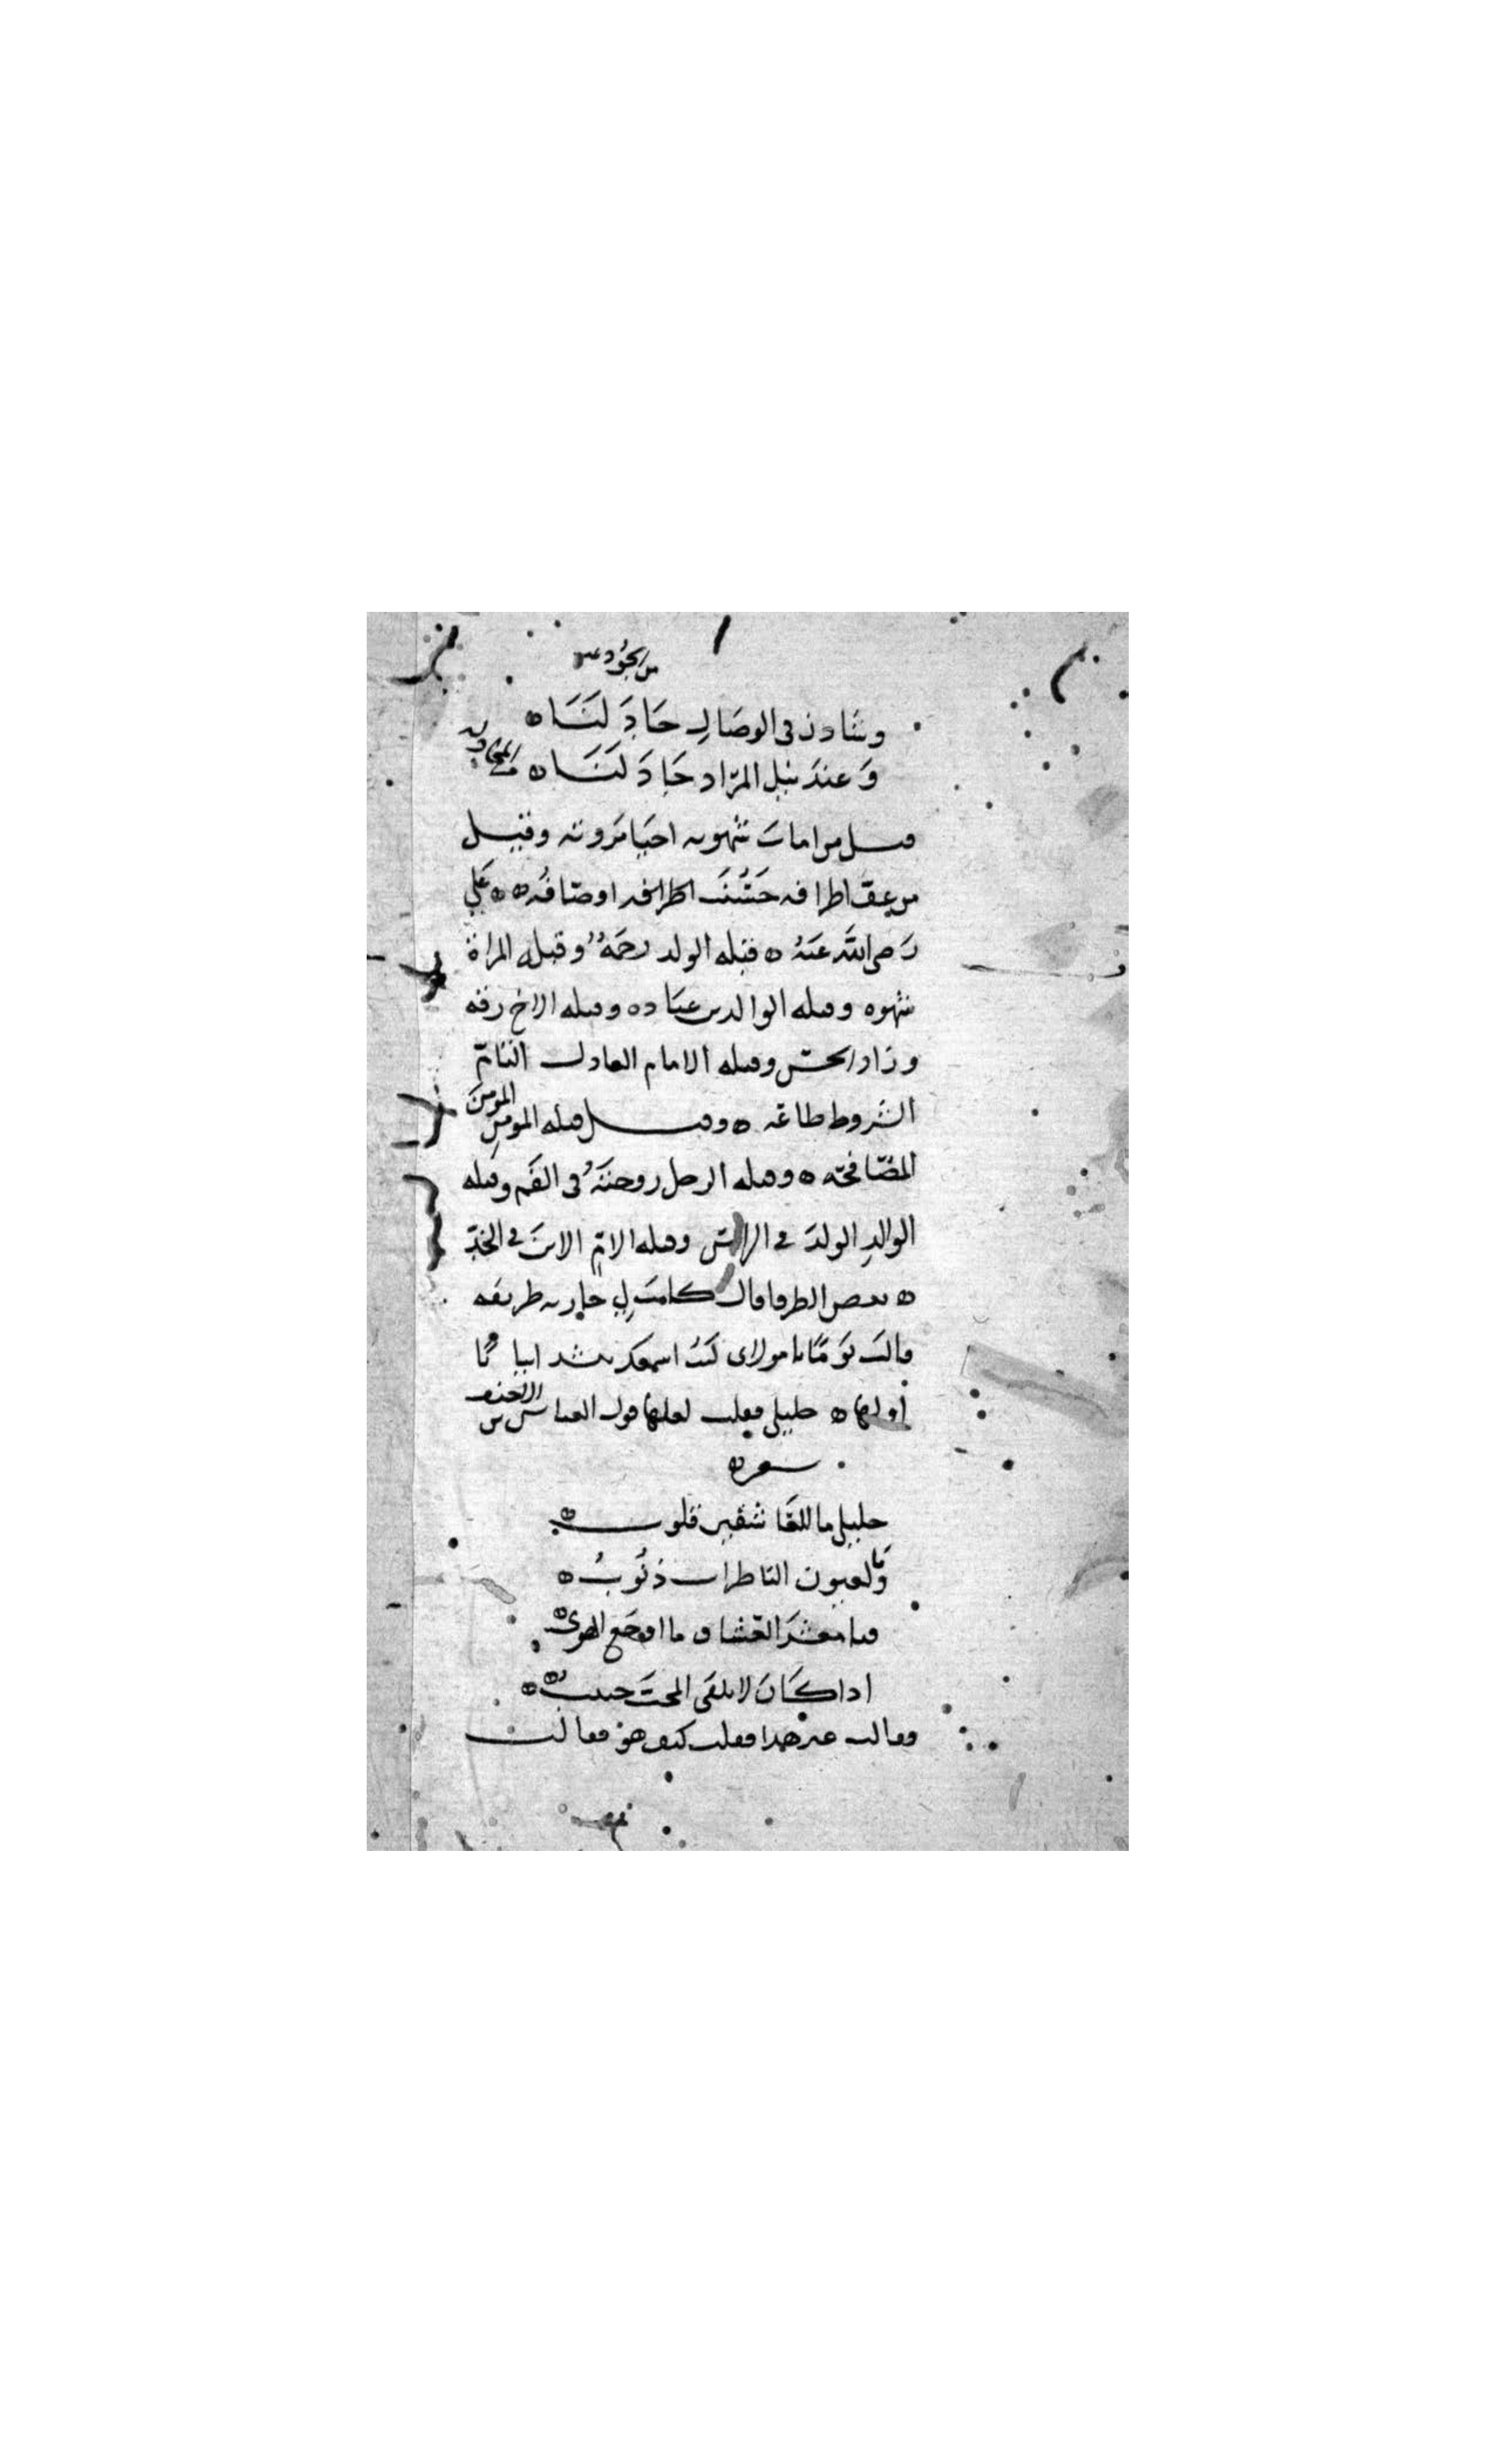 من الجود
وشادن في الوصال جاد لنا ه
وعند نيل المراد جاد لنا ه
قيل من امات شهوته احيا مروته وقيل
من عف اطرافه حسنت اوصافه ه ه علي
رضي الله عنه ه قبله الولد رحمة وقبله المراة
شهوه وقبله الوالدين عباده وقبله الاخ رقه
وزاد الحسن وقبله الامام العادل التام
الشروط طاعه ه وقيل قبله المومن المومن
المصافحه ه وقبله الرجل زوجته في الفم وقبله
الوالد الولد في الراس وقبله الام الابن في الخد
ه بعض الظرفا قال كانت لي جاريه ظريفه
قالت يوما يا مولاي كنت اسمعك تنشد ابياتا
اولها ه خليلي فقلت لعلها قول العباس بن الاحنف
شعر ه
خليلي ما للعاشقين قلوب ه
وما لعيون الناظرات ذنوب ه
فيا معشر العشاق ما اوجع الهوى ه
اذا كان لا يلقى المحب حبيب ه ه
فقالت غير هذا فقلت كيف هو فقالت